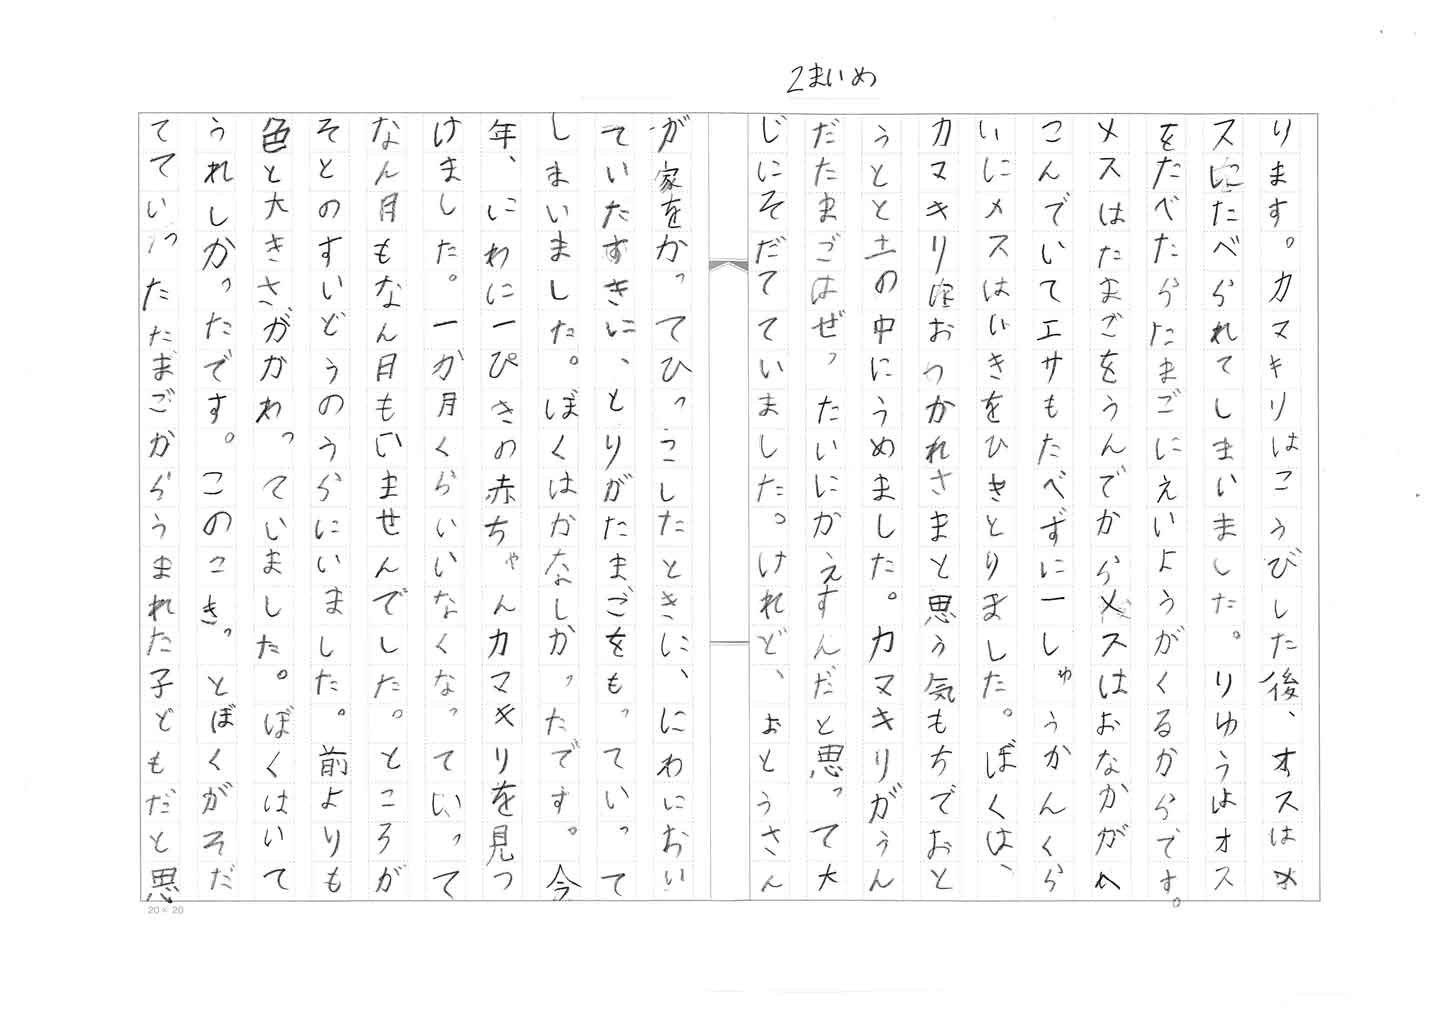 2まいめ
ります。カマキリはこうびした後、オスはメ
スにたべられてしまいました。りゆうはオス
をたべたらたまごにえいようがくるからです。
メスはたまごをうんでからメスはおなかがへ
こんでいてエサもたべずに一しゅうかんくら
いにメスはいきをひきとりました。ぼくは、
カマキリにおわかれさまと思う気もちでおと
うとと土の中にうめました。カマキリがうん
だたまごはぜったいにかえすんだと思って大
じにそだてていました。けれど、おとうさん
が家をかってひっこしたときに、にわにおい
ていたすきに、とりがたまごをもっていって
しまいました。ぼくはかなしかったです。今
年、にわに一ぴきの赤ちゃんカマキリを見つ
けました。一か月くらいいなくなっていって
なん月もなん月もいませんでした。ところが
そとのすいどうのうらにいました。前よりも
色と大きさがかわっていました。ぼくはいて
うれしかったです。このこきっとぼくがそだ
てていったたまごからうまれた子どもだと思
20×20